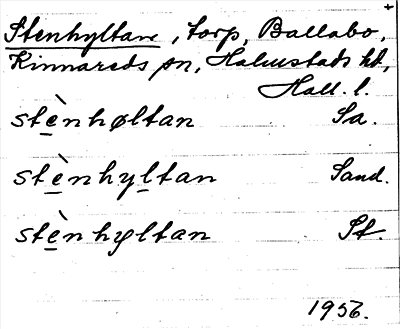 +
Stenhyltan, torp, Ballabo,
Kinnareds sn, Halmstads hd,
Hall. l.
stènhøltan Sa.
stènhyltan Sand.
stènhyltan St.
1956.